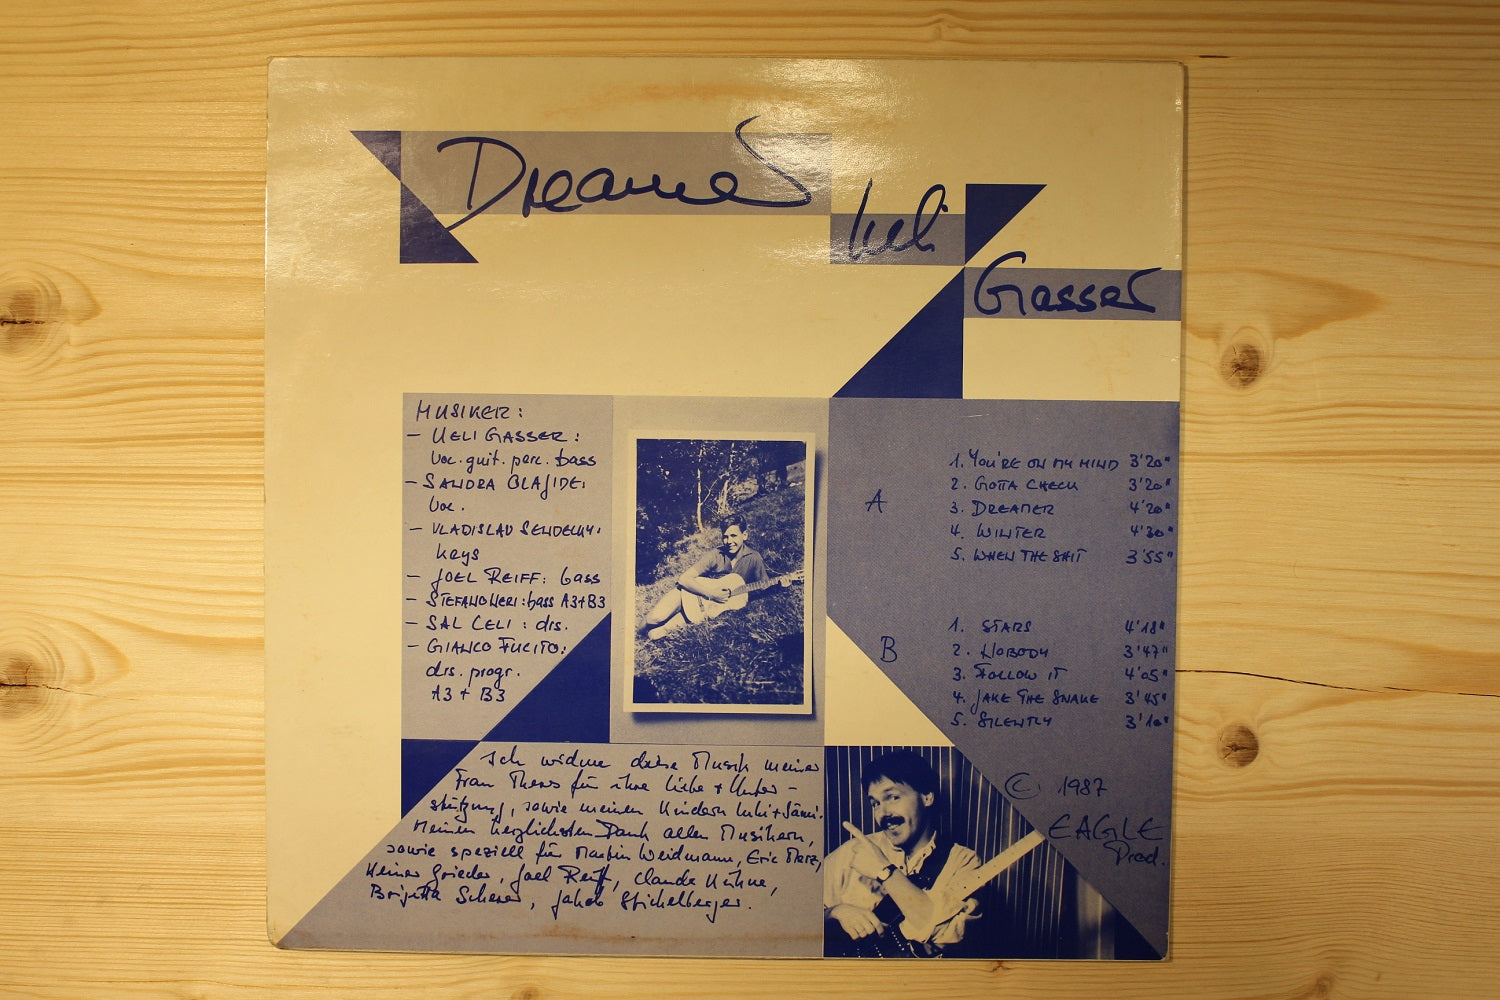 Dreamer
Ueli
Gasser
MUSIKER:
– UELI GASSER:
Voc. guit. perc. bass
– SANDRA
Voc.
– VLADISLAV SENDECKI:
keys
– JOEL REIFF: bass
– STEFANO NERI: bass A3+B3
– SAL CELI: drs.
– GIANCO FUCITO:
drs. progr.
A3 + B3
A
1. YOU'RE ON MY MIND 3'20"
2. GOTTA CHECK 3'20"
3. DREAMER 4'20"
4. WINTER 4'30"
5. WHEN THE SHIT 3'55"
B
1. STARS 4'18"
2. NOBODY 3'47"
3. FOLLOW IT 4'05"
4. JAKE THE SNAKE 3'45"
5. SILENTLY 3'10"
© 1987
EAGLE
Prod.
Ich widme diese Musik meiner
Frau Theres für ihre Liebe + Unter-
stützung, sowie meinen Kindern Luki + Sämi.
Meinen herzlichsten Dank allen Musikern,
sowie speziell für Martin Weidmann, Eric Merz,
Heiner Grieder, Joel Reiff, Claude Kühne,
Brigitta Scherer, Jakob Stickelberger.